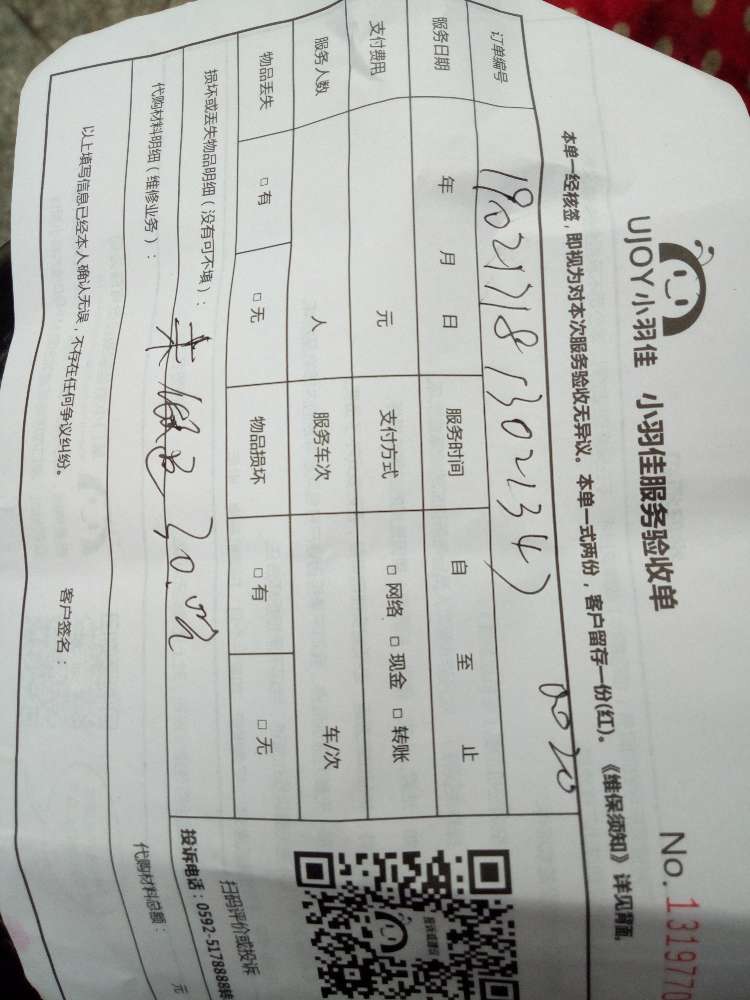 UJOY小羽佳 小羽佳服务验收单
No.131977
本单一经核签，即视为对本次服务验收无异议。本单一式两份，客户留存一份(红)。《维保须知》详见背面。
订单编号
服务日期 年 月 日 服务时间 自 至 止
支付费用 元 支付方式 □ 网络 □ 现金 □ 转账
服务人数 人 服务车次 车/次
物品丢失 □ 有 □ 无 物品损坏 □ 有 □ 无
损坏或丢失物品明细（没有可不填）：
代购材料明细（维修业务）：
代购材料总额： 元
以上填写信息已经本人确认无误，不存在任何争议纠纷。 客户签名：
投诉或建议
扫码评价或投诉
投诉电话：0592-5178888转